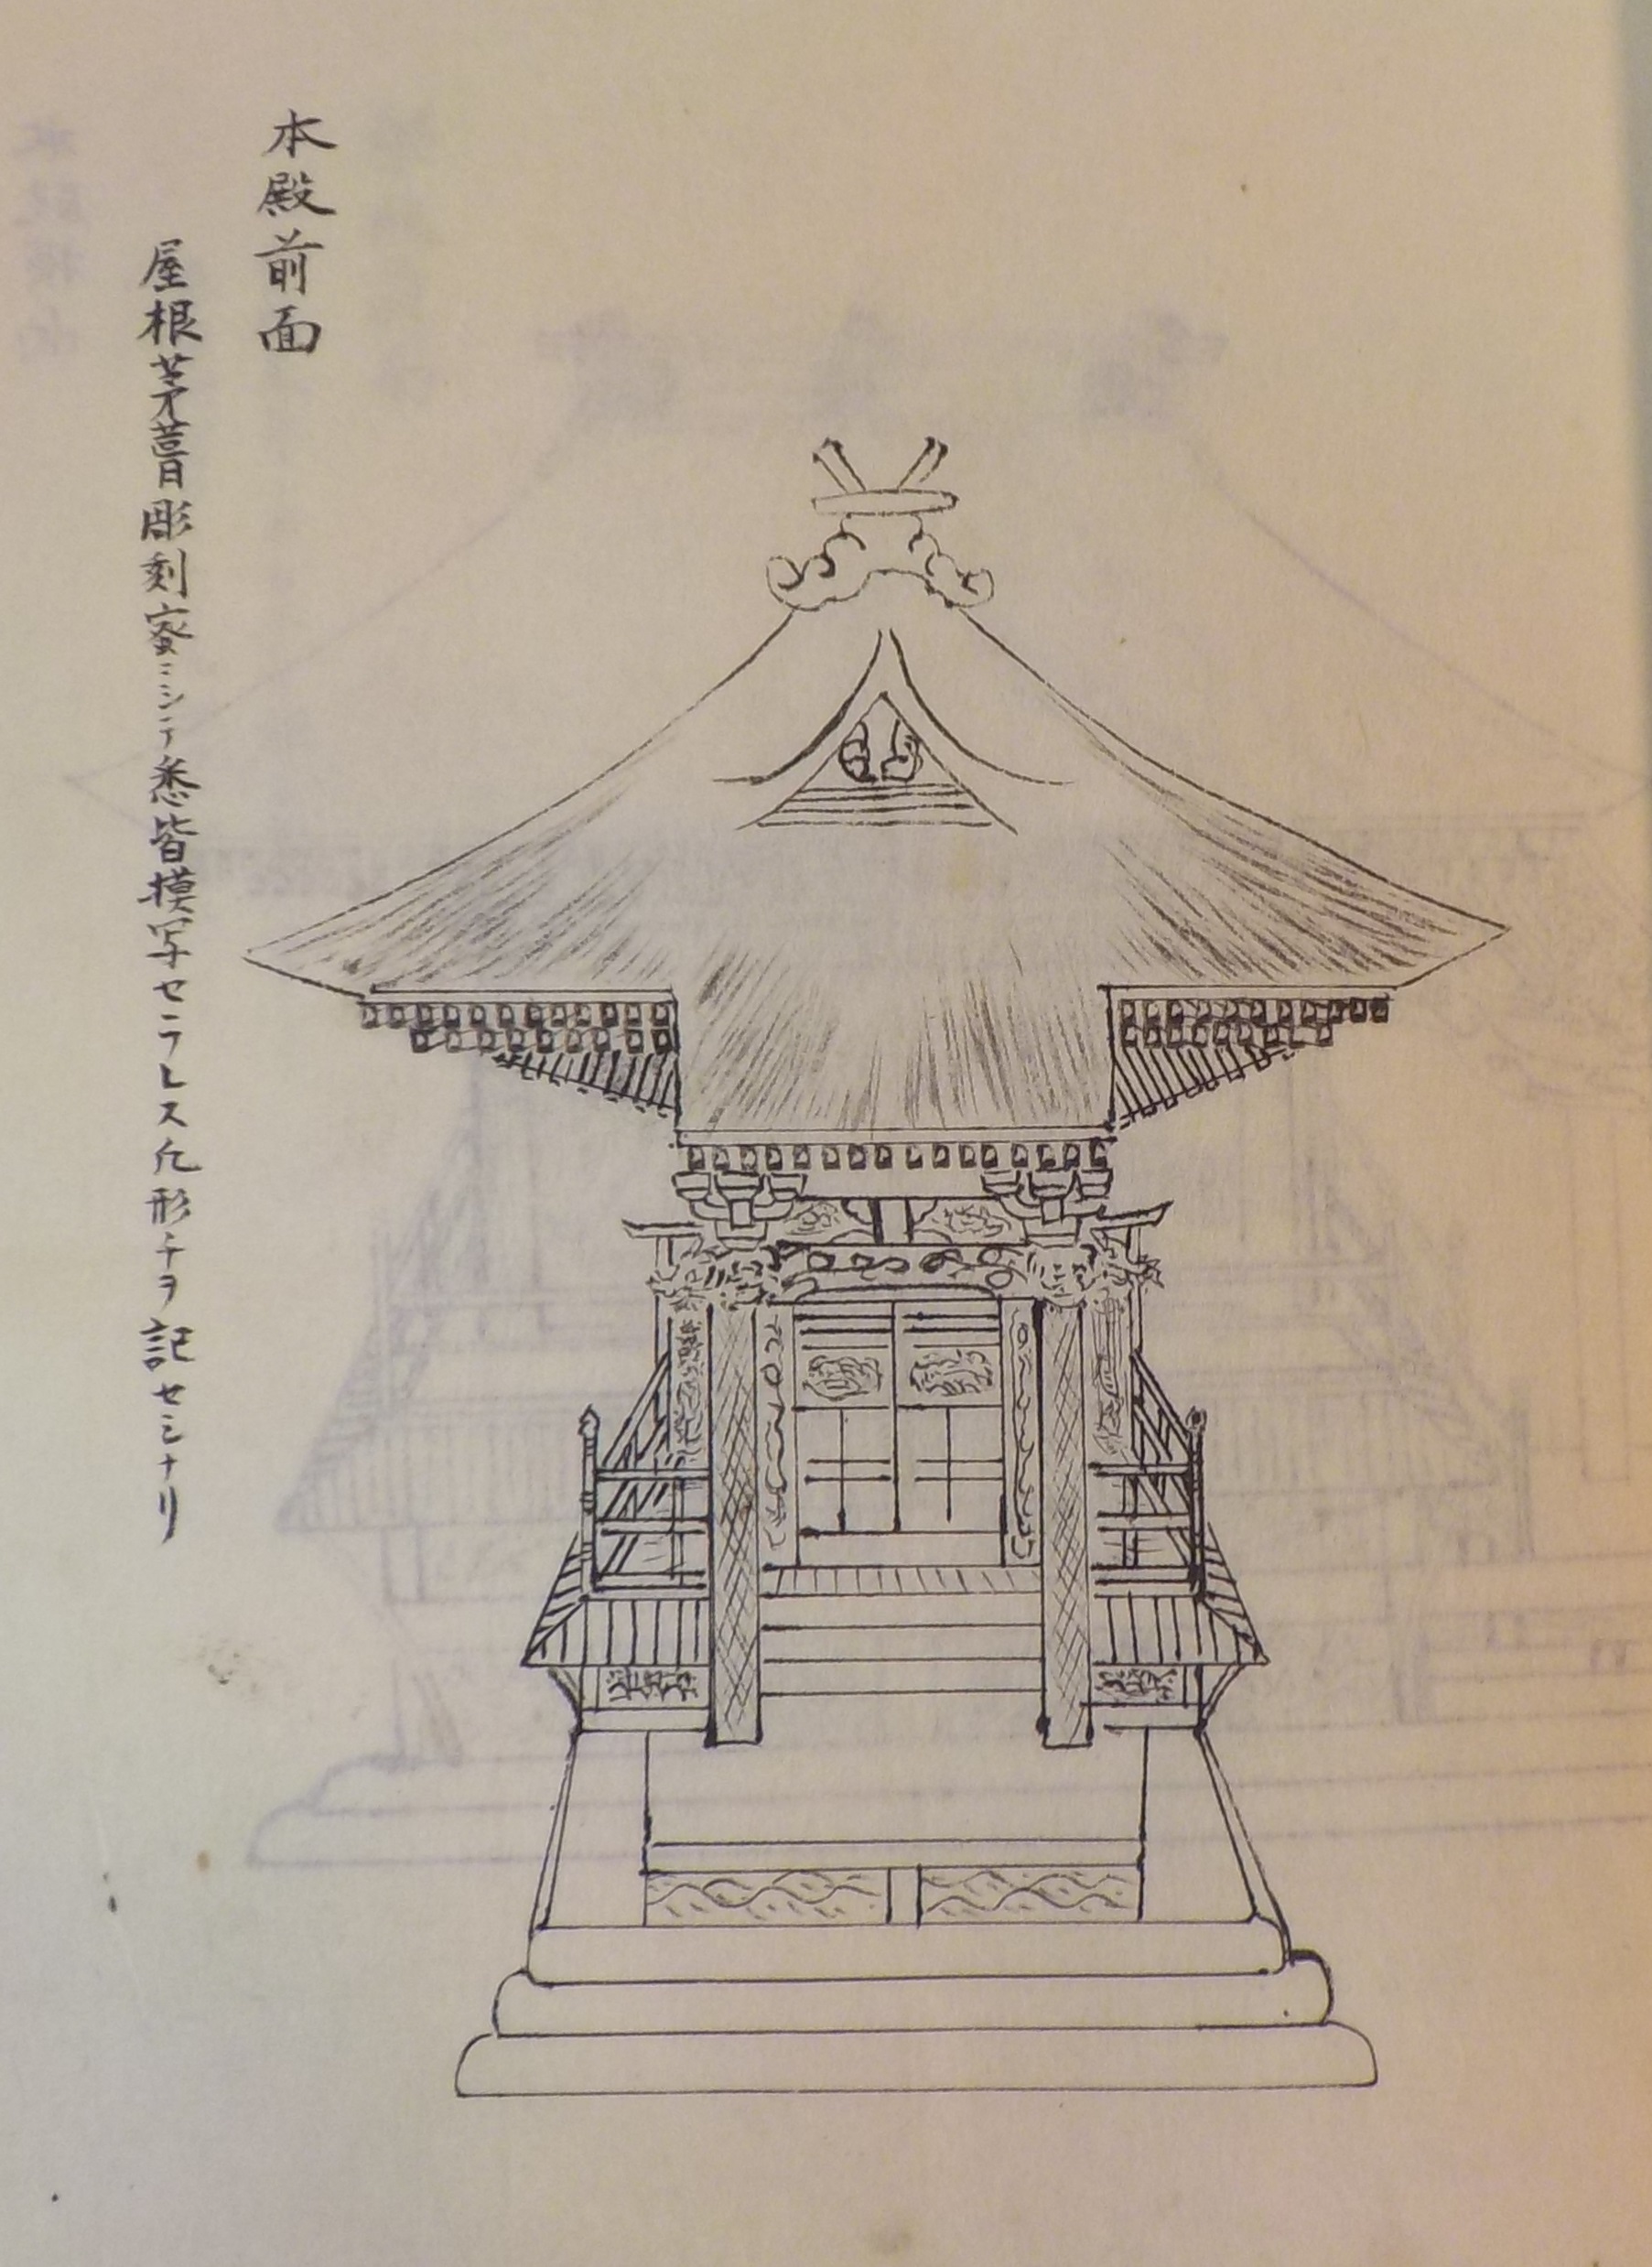 本殿前面
屋根茅葺彫刻密ニシテ悉皆摸写セラレス凡形チヲ記セシナリ